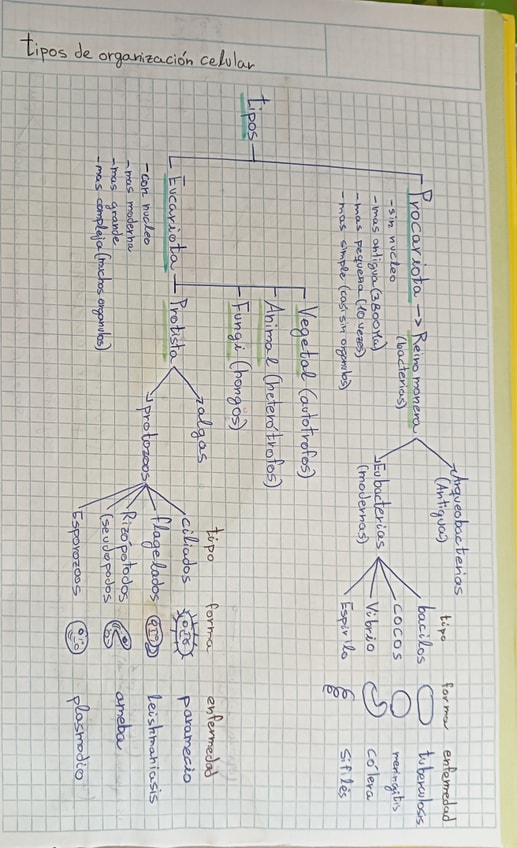 tipos de organización celular
tipos
Procariota → Reino monera
(bacterias)
- sin nucleo
- mas antigua (3800Ma)
- mas pequeña (10 veces)
- mas simple (casi sin organulos)
Arqueobacterias
(Antiguas)
Eubacterias
(modernas)
tipo forma enfermedad
bacilos tuberculosis
cocos meningitis
Vibrio cólera
Espirilo sífilis
Eucariota
- con nucleo
- mas moderna
- mas grande
- mas compleja (muchos organulos)
Vegetal (autótrofos)
Animal (heterótrofos)
Fungi (hongos)
Protista
algas
protozoos
tipo forma enfermedad
ciliados paramecio
flagelados leishmaniasis
Rizópodos ameba
(seudopodos
Esporozoos plasmodio